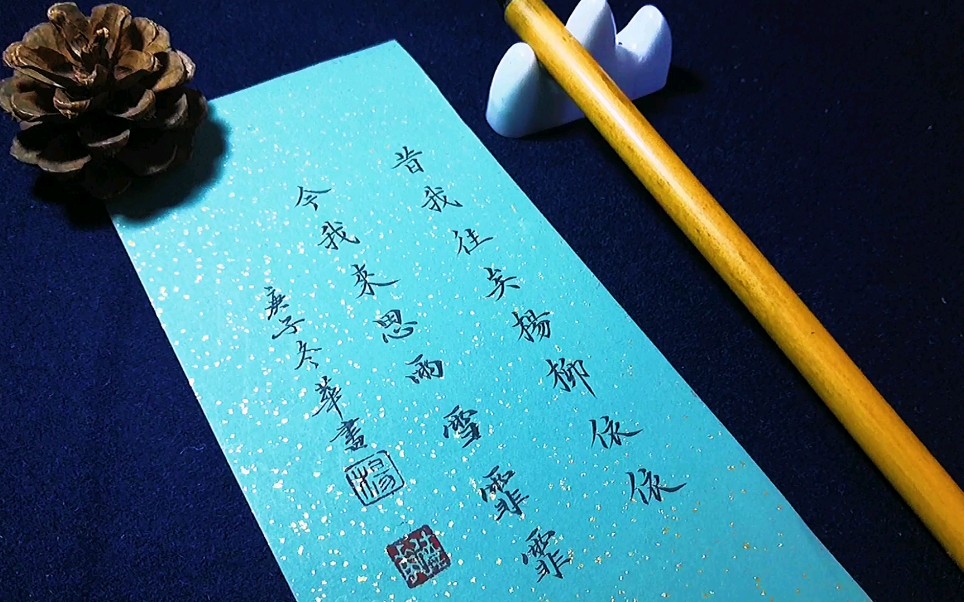 昔我往矣楊柳依依
今我來思雨雪霏霏
庚子冬華書